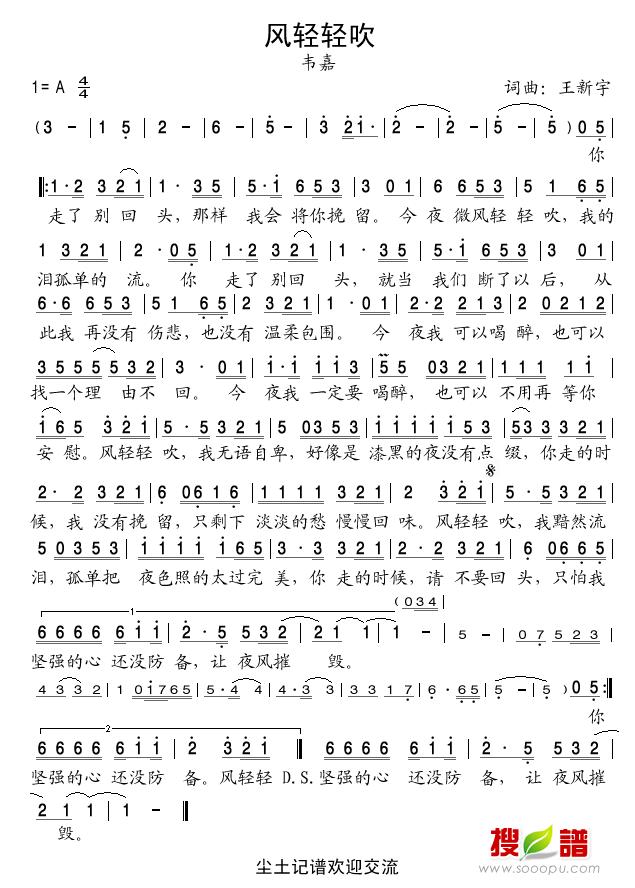 风轻轻吹
韦嘉
1= A 4/4 词曲：王新宇
( 3 - | 1 5 | 2 - | 6 - | 5 - | 3 2 1· | 2 - | 2 - | 5 - | 5 - ) | 0 5 |
你
||: 1·2 3 2 1 | 1· 3 5 | 5·1 6 5 3 | 3 0 1 | 6·6 6 5 3 | 5 1 6 5 |
走了 别回 头，那样 我会 将你挽 留。今夜 微风轻 轻吹，我的
1 3 2 1 | 2 · 0 5 | 1·2 3 2 1 | 1· 3 5 | 5·1 6 5 3 | 3 0 1 |
泪孤单的 流。你 走了 别回 头，就当 我们 断了以 后，从
6·6 6 6 5 3 | 5 1 6 5 | 2 3 2 1 | 1 · 0 1 | 2·2 2 2 1 | 2 0 2 1 2 |
此我 再没有 伤悲，也没有 温柔包围。今 夜我 可以喝 醉，也可以
3 5 5 5 5 5 3 2 | 3 · 0 1 | 1·1 1 1 3 | 5 5 0 3 2 1 | 1 1 1 1 1 |
找一个理 由不 回。今 夜我 一定要 喝醉，也可以 不用再 等你
1 6 5 3 2 1 | 5 · 5 3 5 3 | 2 · 3 2 1 | 1 1 1 1 1 5 3 | 5 3 3 3 2 1 |
安 慰。风轻轻 吹，我无语自卑，好像是 漆黑的夜没有点 缀，你走的时
2 · 2 3 2 1 | 6 0 6 1 6 | 1 1 1 1 3 2 1 | 2 3 2 1 | 5 · 5 3 2 1 |
候，我 没有挽 留，只剩下 淡淡的愁 慢慢回 味。风轻轻 吹，我黯然流
5 0 3 5 3 | 1 1 1 1 1 6 5 | 3· 3 3 2 1 | 2·2 3 2 1 | 6 0 6 6 5 |
泪，孤单把 夜色照的太过完 美，你 走的时候，请 不要回 头，只怕我
1 ( 0 3 4
6 6 6 6 6 1 1 | 2 · 5 5 3 2 | 2 1 1 | 1 - | 5 - | 0 7 5 2 3 |
坚强的心 还没防 备，让 夜风摧 毁。
4 3 3 2 | 1 0 1 7 6 5 | 5·4 4 | 4·3 3 | 3 3 1 7 | 6 · 6 5 | 5 - | 5 - ) | 0 5 :||
你
2
6 6 6 6 6 1 1 | 2 3 2 1 || 6 6 6 6 6 1 1 | 2 · 5 5 3 2 |
坚强的心 还没防 备。风轻轻 D.S.坚强的心 还没防 备，让 夜风摧
2 1 1 1 | 1 - ||
毁。
搜谱
www.sooopu.com
尘土记谱欢迎交流